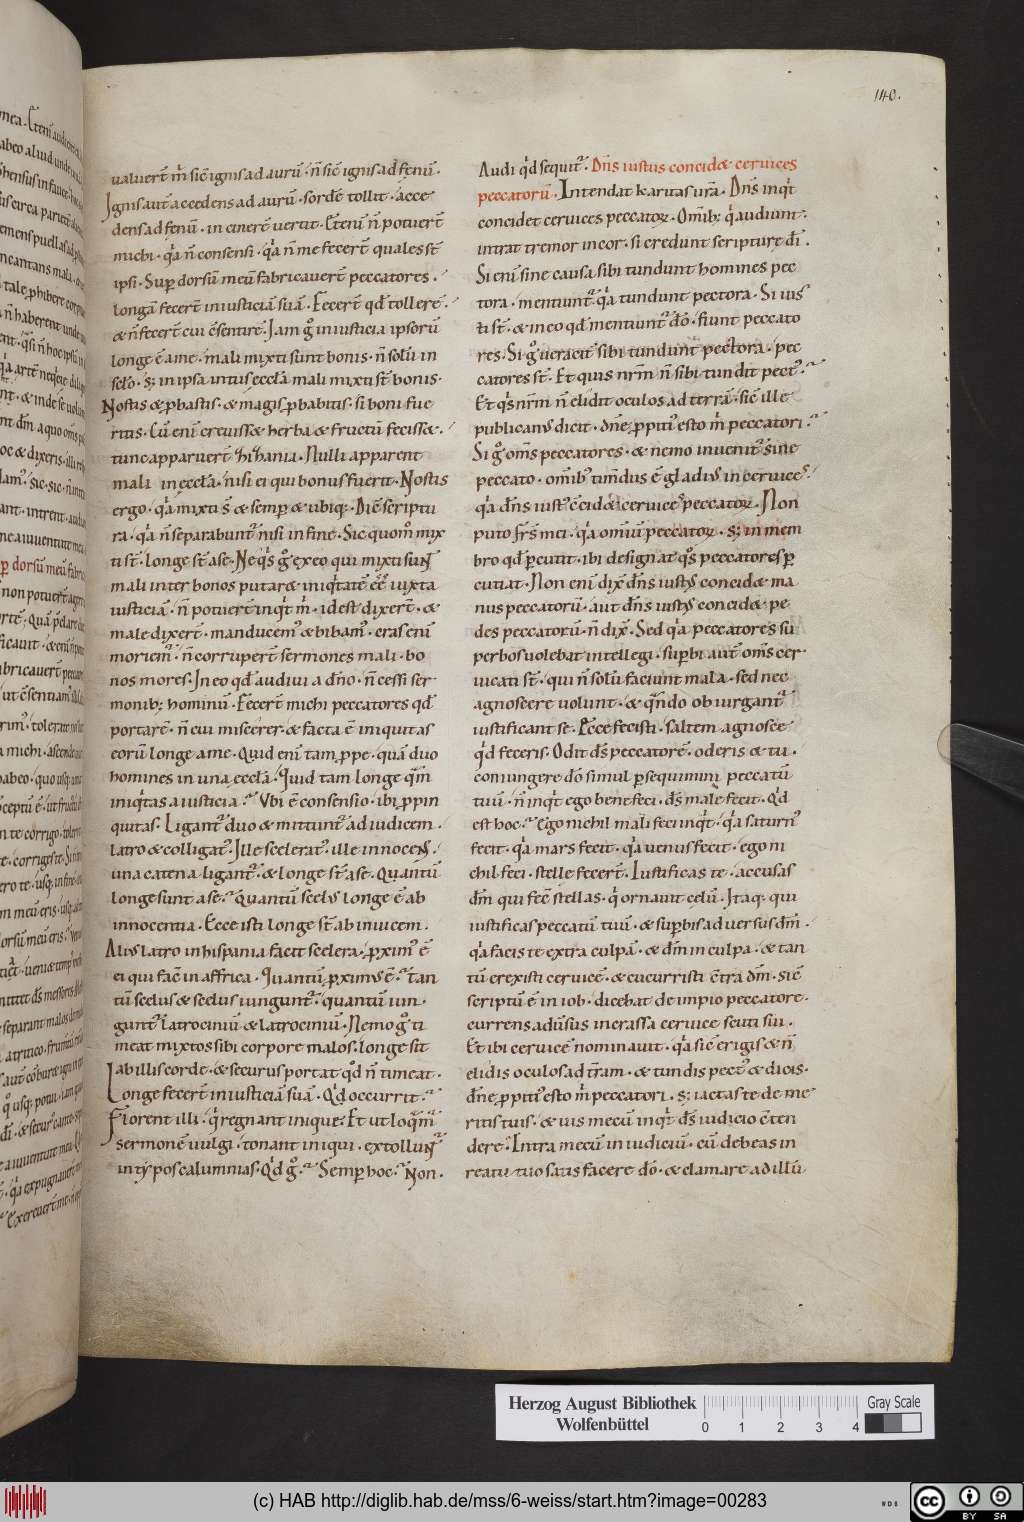 140.
ualuert̄ m̄ sic̄ ignis ad aurū · n̄ sic̄ ignis ad fenū ·
Ignis aut̄ accedens ad aurū · sordē tollit · acce
dens ad fenū · in cinerē uertit · Eteni n̄ potuert̄
michi · q̄a n̄ consensi · q̄a n̄ me fecert̄ quales st̄
ipsi · Sup dorsū meū fabricauert̄ peccatores ·
longā fecert̄ iniusticiā suā · Fecert̄ qd̄ tollerē ·
& n̄ fecert̄ cui c̄sentirē · Iam g̊ iniusticia ipsorū
longe ē a me · mali mixti sunt bonis · n̄ solū in
sclo · s; in ipsa intus eccl̄a mali mixti st̄ bonis ·
Nostis & pbastis · & magis pbabitis · si boni fue
ritis · Cū enī creuiss& herba & fructū feciss& ·
tunc apparuert̄ zizania · Nulli apparent
mali in eccl̄a · nisi ei qui bonus fuerit · Nostis
ergo · q̄a mixti s̄ & semp & ubiq; · Dic̄ scriptu
ra · q̄a n̄ separabunt᷒ nisi in fine · Sic quom̊ mix
ti st̄ · longe st̄ a se · Ne q̄s g̊ exeo qui mixti sunt
mali inter bonos putar& iniq̄tatē ēē iuxta
iusticiā · n̄ potuert̄ inqt̄ m̄ · id est dixert̄ · &
male dixert̄ · manducem᷒ & bibam᷒ · cras enī
moriem᷒ · n̄ corrupert̄ sermones mali · bo
nos mores · In eo qd̄ audiui a dn̄o · n̄ cessi ser
monib; hominū · Fecert̄ michi peccatores qd̄
portarē · n̄ cui miscerer · & facta ē iniquitas
eorū longe a me · Quid enī tam ppe · quā duo
homines in una eccl̄a · Quid tam longe q̄m̄
iniq̄tas a iusticia · Vbi ē consensio · ibi ppin
quitas · Ligant᷒ duo & mittunt᷒ ad iudicem ·
latro & colligat᷒ · Ille scelerat᷒ · ille innocens ·
una catena ligant᷒ · & longe st̄ a se · Quantū
longe sunt a se · Quantū scelus longe ē ab
innocentia · Ecce isti longe st̄ ab inuicem ·
Alius latro in hispania facit scelera · pxim᷒ ē
ei qui fac̄ in affrica · Quantū pximus ē · tan
tū scelus & scelus iungunt᷒ · quantū iun ·
gunt᷒ latrociniū & latrociniū · Nemo g̊ ti
meat mixtos sibi corpore malos · longe sit
ab illis corde · & securus portat qd̄ n̄ timeat ·
Longe fecert̄ iniusticiā suā · Qd̄ occurrit ·
Florent illi · q̄ regnant inique · Et ut loq̄m̄
sermonē uulgi · tonant iniqui · extollunt᷒
in typos calumnias · Qd̄ g̊ · Semp hoc · Non ·
Audi qd̄ sequit᷒ · Dn̄s iustus concid& ceruices
peccatorū · Intendat karitas urā · Dn̄s inqt̄
concidet ceruices peccator · Omib; q̄ audiunt ·
intrat tremor in cor · si credunt scripturē dī ·
Si enī sine causa sibi tundunt homines pec
tora · mentiunt᷒ q̄a tundunt pectora · Si ius
ti st̄ · & in eo qd̄ mentiunt᷒ dō · fiunt peccato
res · Si g̊ ueracit᷒ sibi tundunt pectora · pec
catores st̄ · Et quis nrm̄ n̄ sibi tundit pect᷒ ·
Et q̄s nrm̄ n̄ elidit oculos ad terrā · sic̄ ille
publicanus dicit · dn̄e ppiti᷒ esto m̄ peccatori ·
Si g̊ om̄s peccatores · & nemo inuenit᷒ sine
peccato · omib᷒ tim̄dus ē gladius in ceruices
q̄a dn̄s iust᷒ c̄cid& ceruices peccator · Non
puto frs̄ mei · q̄a omiū peccator · s; in mem
bro qd̄ pcutit · ibi designat q̄s peccatores p
cutiat · Non enī dix̄ dn̄s iustus concid& ma
nus peccatorū · aut dn̄s iustus concid& pe
des peccatorū · n̄ dix̄ · Sed q̄a peccatores su
perbos uolebat intellegi · supbi aut̄ om̄s cer
uicati st̄ · qui n̄ solū faciunt mala · sed nec
agnoscere uolunt · & q̄ndo obiurgant᷒
iustificant se · Ecce fecisti · saltem agnosce
qd̄ feceris · Odit ds̄ peccatorē · oderis & tu ·
coniungere dō simul psequimini peccatū
tuū · n̄ inqt̄ ego bene feci · ds̄ male fecit · Qd̄
est hoc · Ego nichil mali feci inqt̄ · q̄a saturn᷒
fecit · q̄a mars fecit · q̄a uenus fecit · ego ni
chil feci · stelle fecert̄ · Iustificas te · accusas
dm̄ qui fec̄ stellas · q̄ ornauit celū · Itaq; qui
iustificas peccatū tuū · & supbis aduersus dm̄ ·
q̄a facis te extra culpā · & dm̄ in culpa · & tan
tū erexisti ceruicē · & cucurristi c̄tra dm̄ · sic̄
scriptū ē in iob · dicebat de impio peccatore ·
currens aduersus in crassa ceruice scuti sui ·
Et ibi ceruicē nominauit · q̄a sic̄ erigis & n̄
elidis oculos ad trr̄am · & tundis pect᷒ & dicis ·
dn̄e ppiti᷒ esto m̄ peccatori · s; iactas te de me
ritis tuis · & uis mecū inqt̄ ds̄ iudicio c̄ten
dere · Intra mecū in iudiciū · cū debeas in
reatu tuo satisfacere dō · & clamare ad illū
Herzog August Bibliothek
Wolfenbüttel
0 1 2 3 4
Gray Scale
(c) HAB http://diglib.hab.de/mss/6-weiss/start.htm?image=00283
cc BY SA